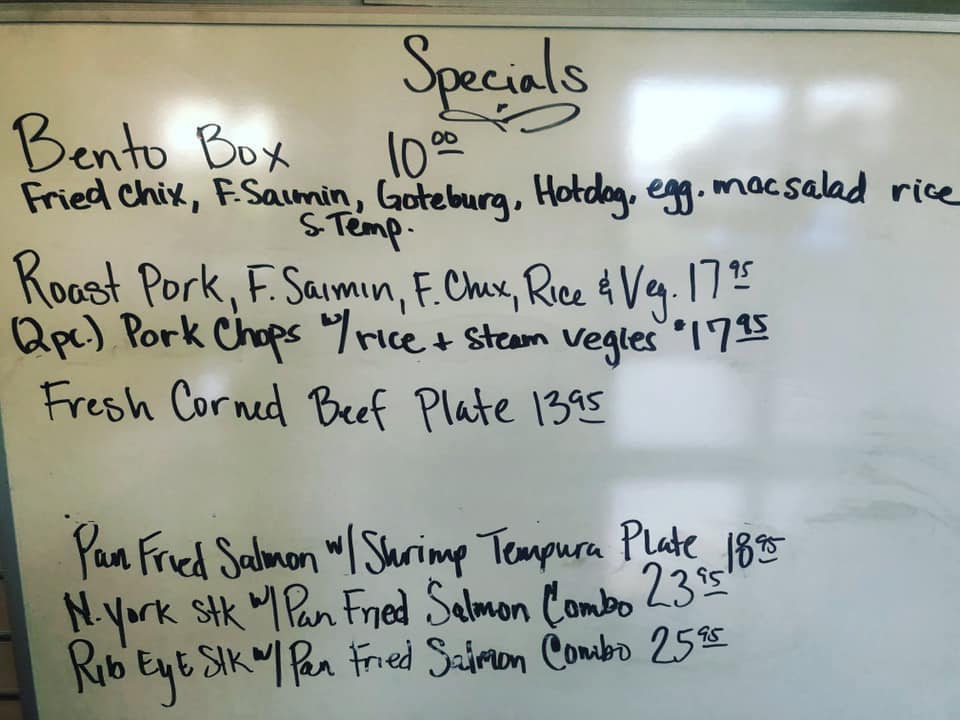 Specials
Bento Box 10 00
Fried Chix, F. Saimin, Goteburg, Hotdog, egg. mac salad rice
S. Temp.
Roast Pork, F. Saimin, F. Chix, Rice & Veg. 17 95
(2pc.) Pork Chops w/ rice + Steam vegies $17 95
Fresh Corned Beef Plate 13 95
Pan Fried Salmon w/ Shrimp Tempura Plate 18 95
N. York Stk w/ Pan Fried Salmon Combo 23 95
Rib Eye Stk w/ Pan Fried Salmon Combo 25 95